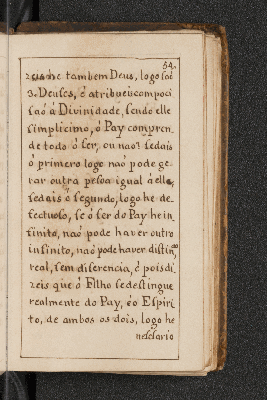 54.
zeis he tambem Deus, logo saõ
3. Deuses, é atribueis compoci
saõ à Divinidade, sendo elle
simplicimo, ó Pay compren,
de todo ó ser, ou naõ? sedais
ó primeiro logo naõ póde ge
rar outra pessoa igual à elle,
sedais ó segundo, logo he de
fectuoso, se ó ser do Pay he in
finito, naõ pode haver outro
infinito, naõ pode haver distinçaõ
real, sem diferencia, é pois di
zeis que ó Filho se destingue
realmente do Pay, é o Espiri
to, de ambos os dois, logo he
nescesario